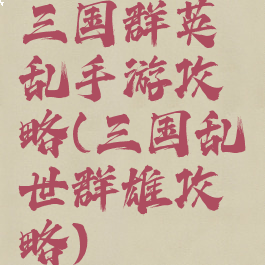 三国群英
乱手游攻
略(三国乱
世群雄攻
略)